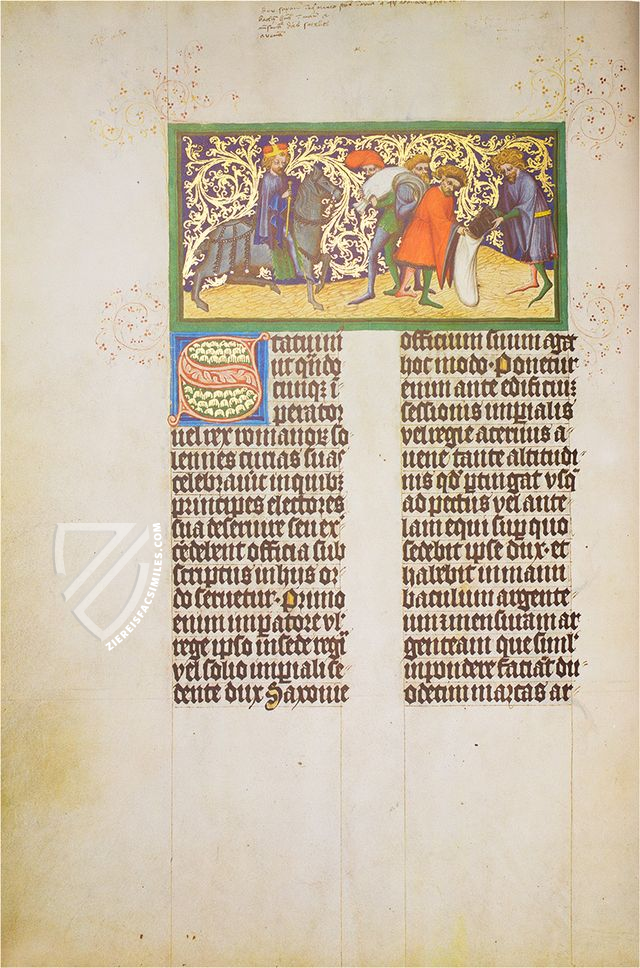 Statuim
ut qn̄do
cumqꝫ ī
perator
uel rex romanoꝝ so
lennes curias suas
celebrauit in quibꝫ
principes electores
sua deseruire seu ex
cedelent officia sub
scriptus in hus or
do seruetur. Primo
enim imꝑatore ul̓
rege ipso in sede regī
vel solio imꝑiali se
dente dux Saxonie
officium suum agat
hoc modo. Ponetur
enim ante edificiuꝫ
sessionis imꝑialis
vel regie aceruus a
uene tante altitudi
nis qd̓ ꝑtingat vsqꝫ
ad pectus vel ante
lam equi suꝑ quo
sedebit ipse dux. et
habebit in manu
baculum argente
um ⁊ mensuram ar
genteam que siml̓
in pondere faciāt du
odecim marcas ar
ZIEREISFACSIMILES.COM